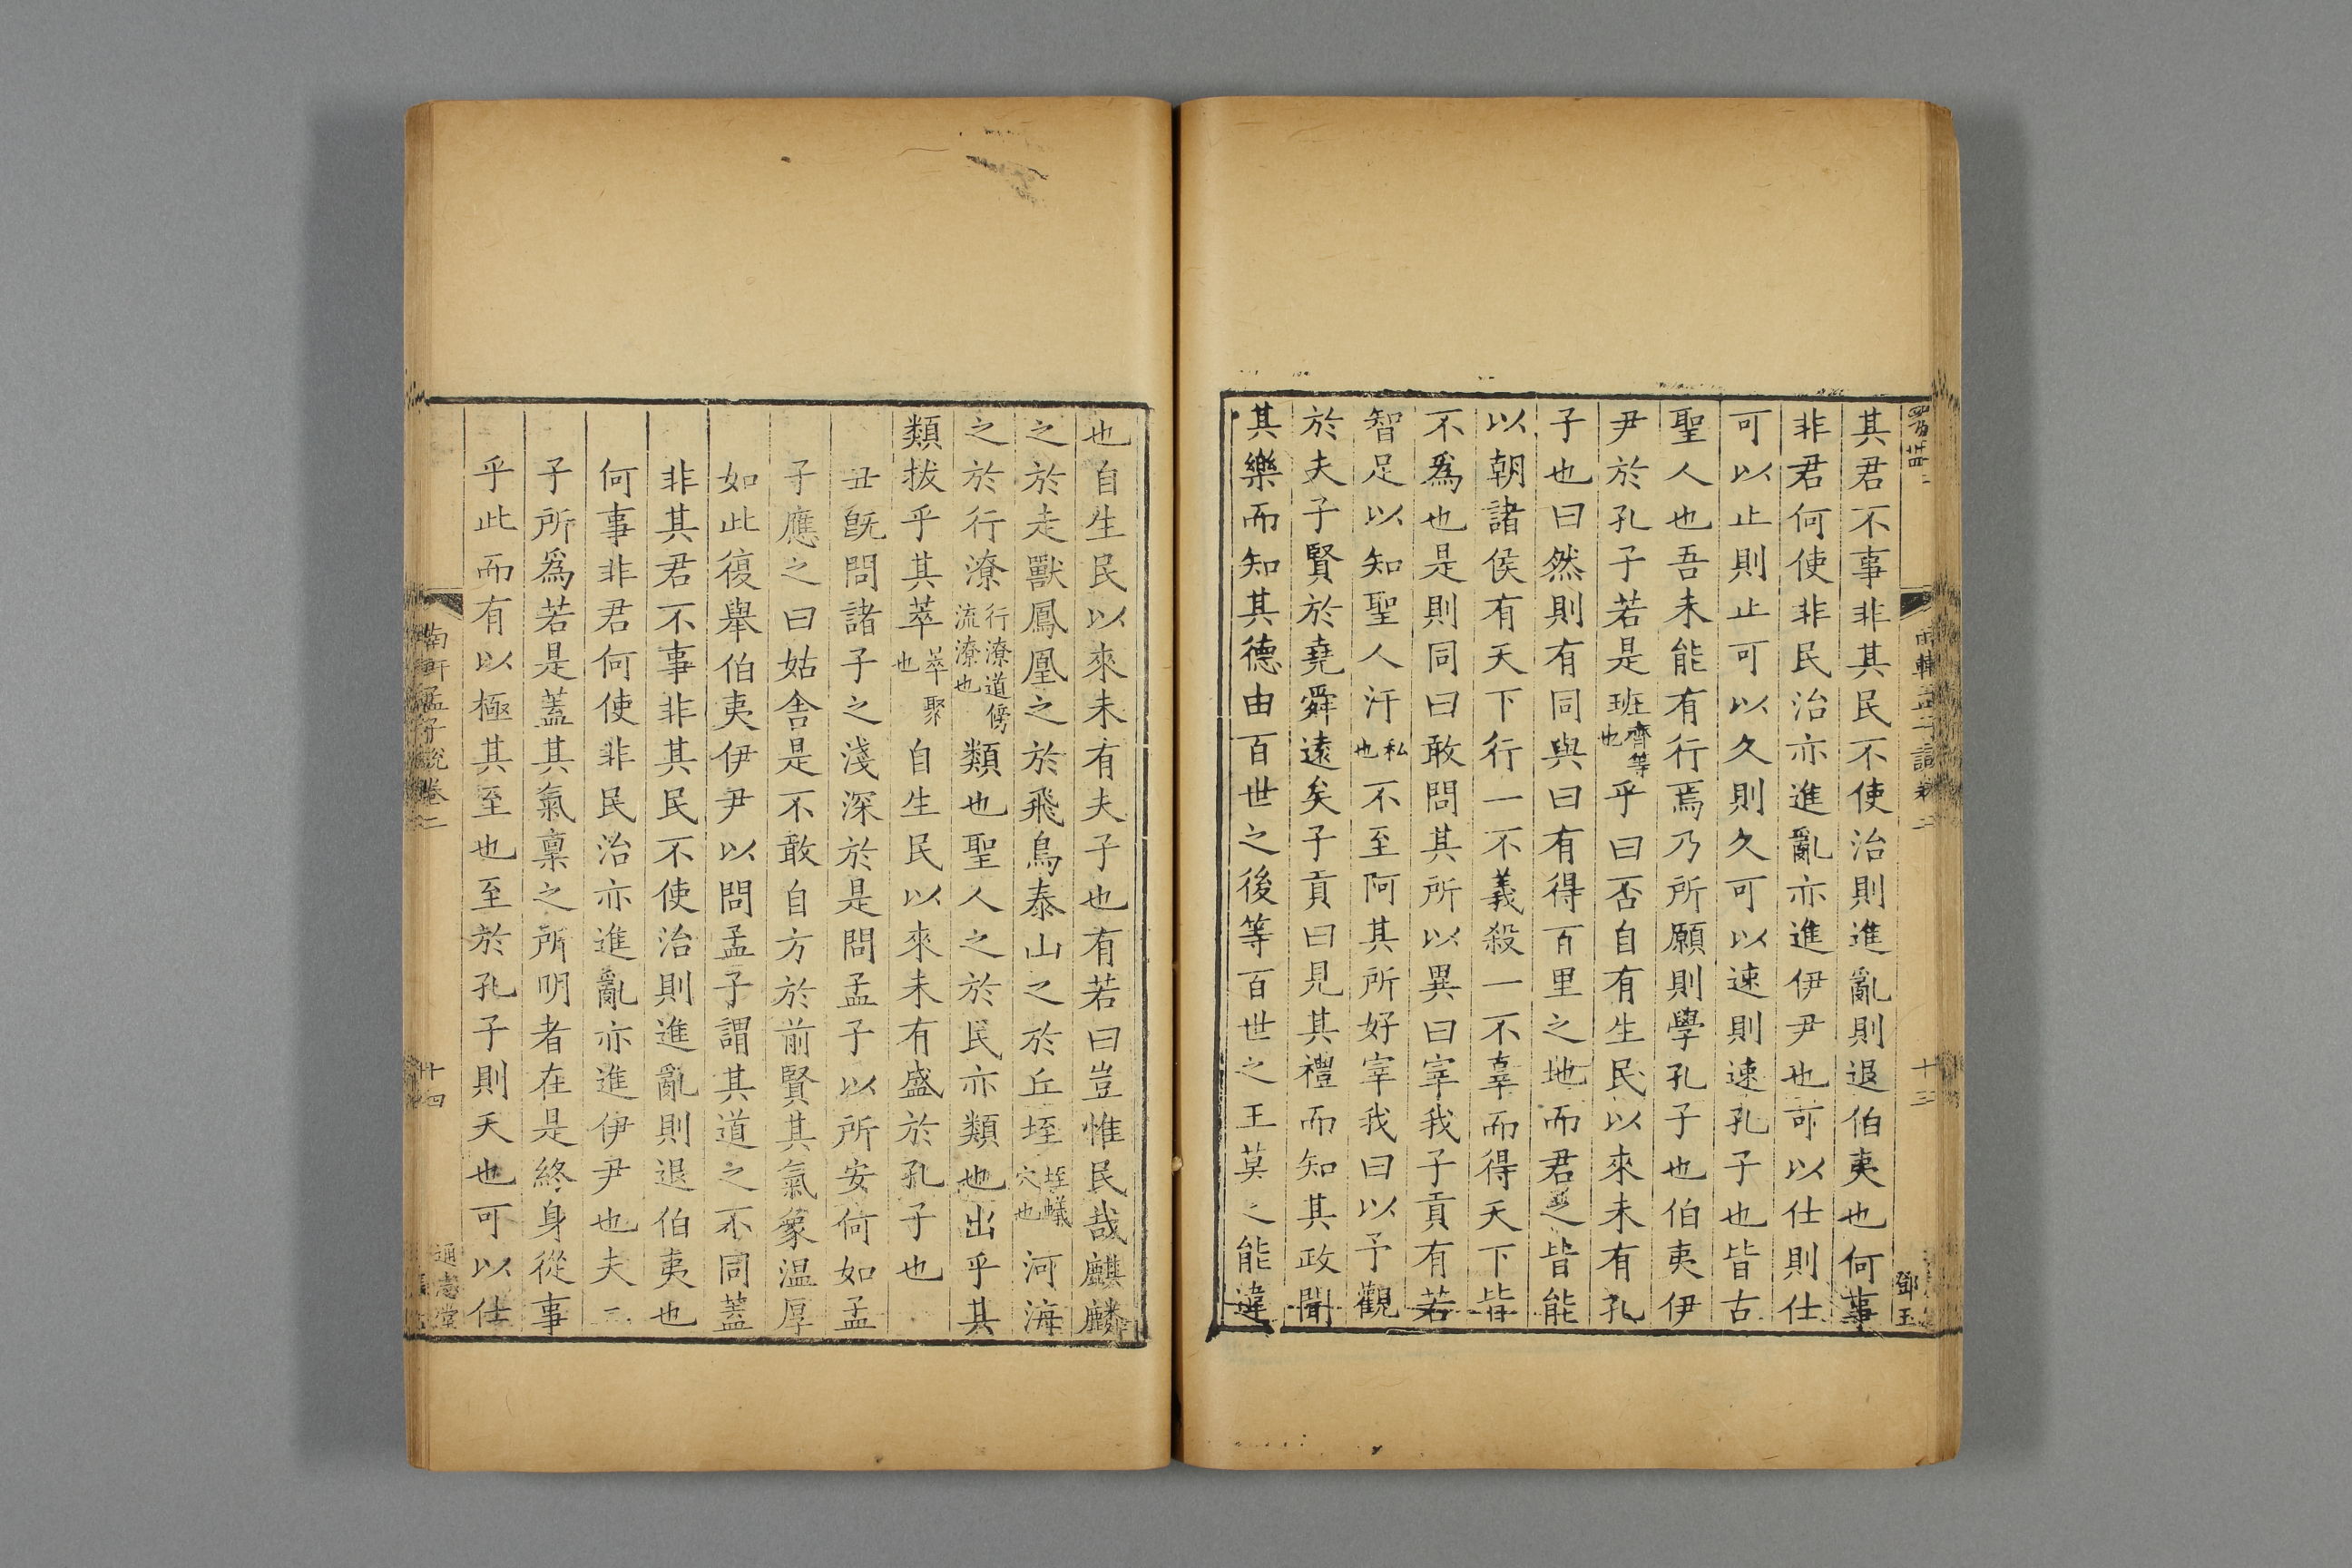 其君不事非其民不使治則進亂則退伯夷也何事
非君何使非民治亦進亂亦進伊尹也可以仕則仕
可以止則止可以久則久可以速則速孔子也皆古
聖人也吾未能有行焉乃所願則學孔子也伯夷伊
尹於孔子若是班齊等也乎曰否自有生民以來未有孔
子也曰然則有同與曰有得百里之地而君之皆能
以朝諸侯有天下行一不義殺一不辜而得天下皆
不爲也是則同曰敢問其所以異曰宰我子貢有若
智足以知聖人汙私也不至阿其所好宰我曰以予觀
於夫子賢於堯舜遠矣子貢曰見其禮而知其政聞
其樂而知其德由百世之後等百世之王莫之能違
十三
鄧玉
也自生民以來未有夫子也有若曰豈惟民哉麒麟
之於走獸鳳凰之於飛鳥泰山之於丘垤垤蟻穴也河海
之於行潦行潦道傍流潦也類也聖人之於民亦類也出乎其
類拔乎其萃萃聚也自生民以來未有盛於孔子也
丑旣問諸子之淺深於是問孟子以所安何如孟
子應之曰姑舍是不敢自方於前賢其氣象温厚
如此復舉伯夷伊尹以問孟子謂其道之不同蓋
非其君不事非其民不使治則進亂則退伯夷也
何事非君何使非民治亦進亂亦進伊尹也夫二
子所爲若是蓋其氣稟之所明者在是終身從事
乎此而有以極其至也至於孔子則天也可以仕
南軒孟子說卷二
十四
通志堂